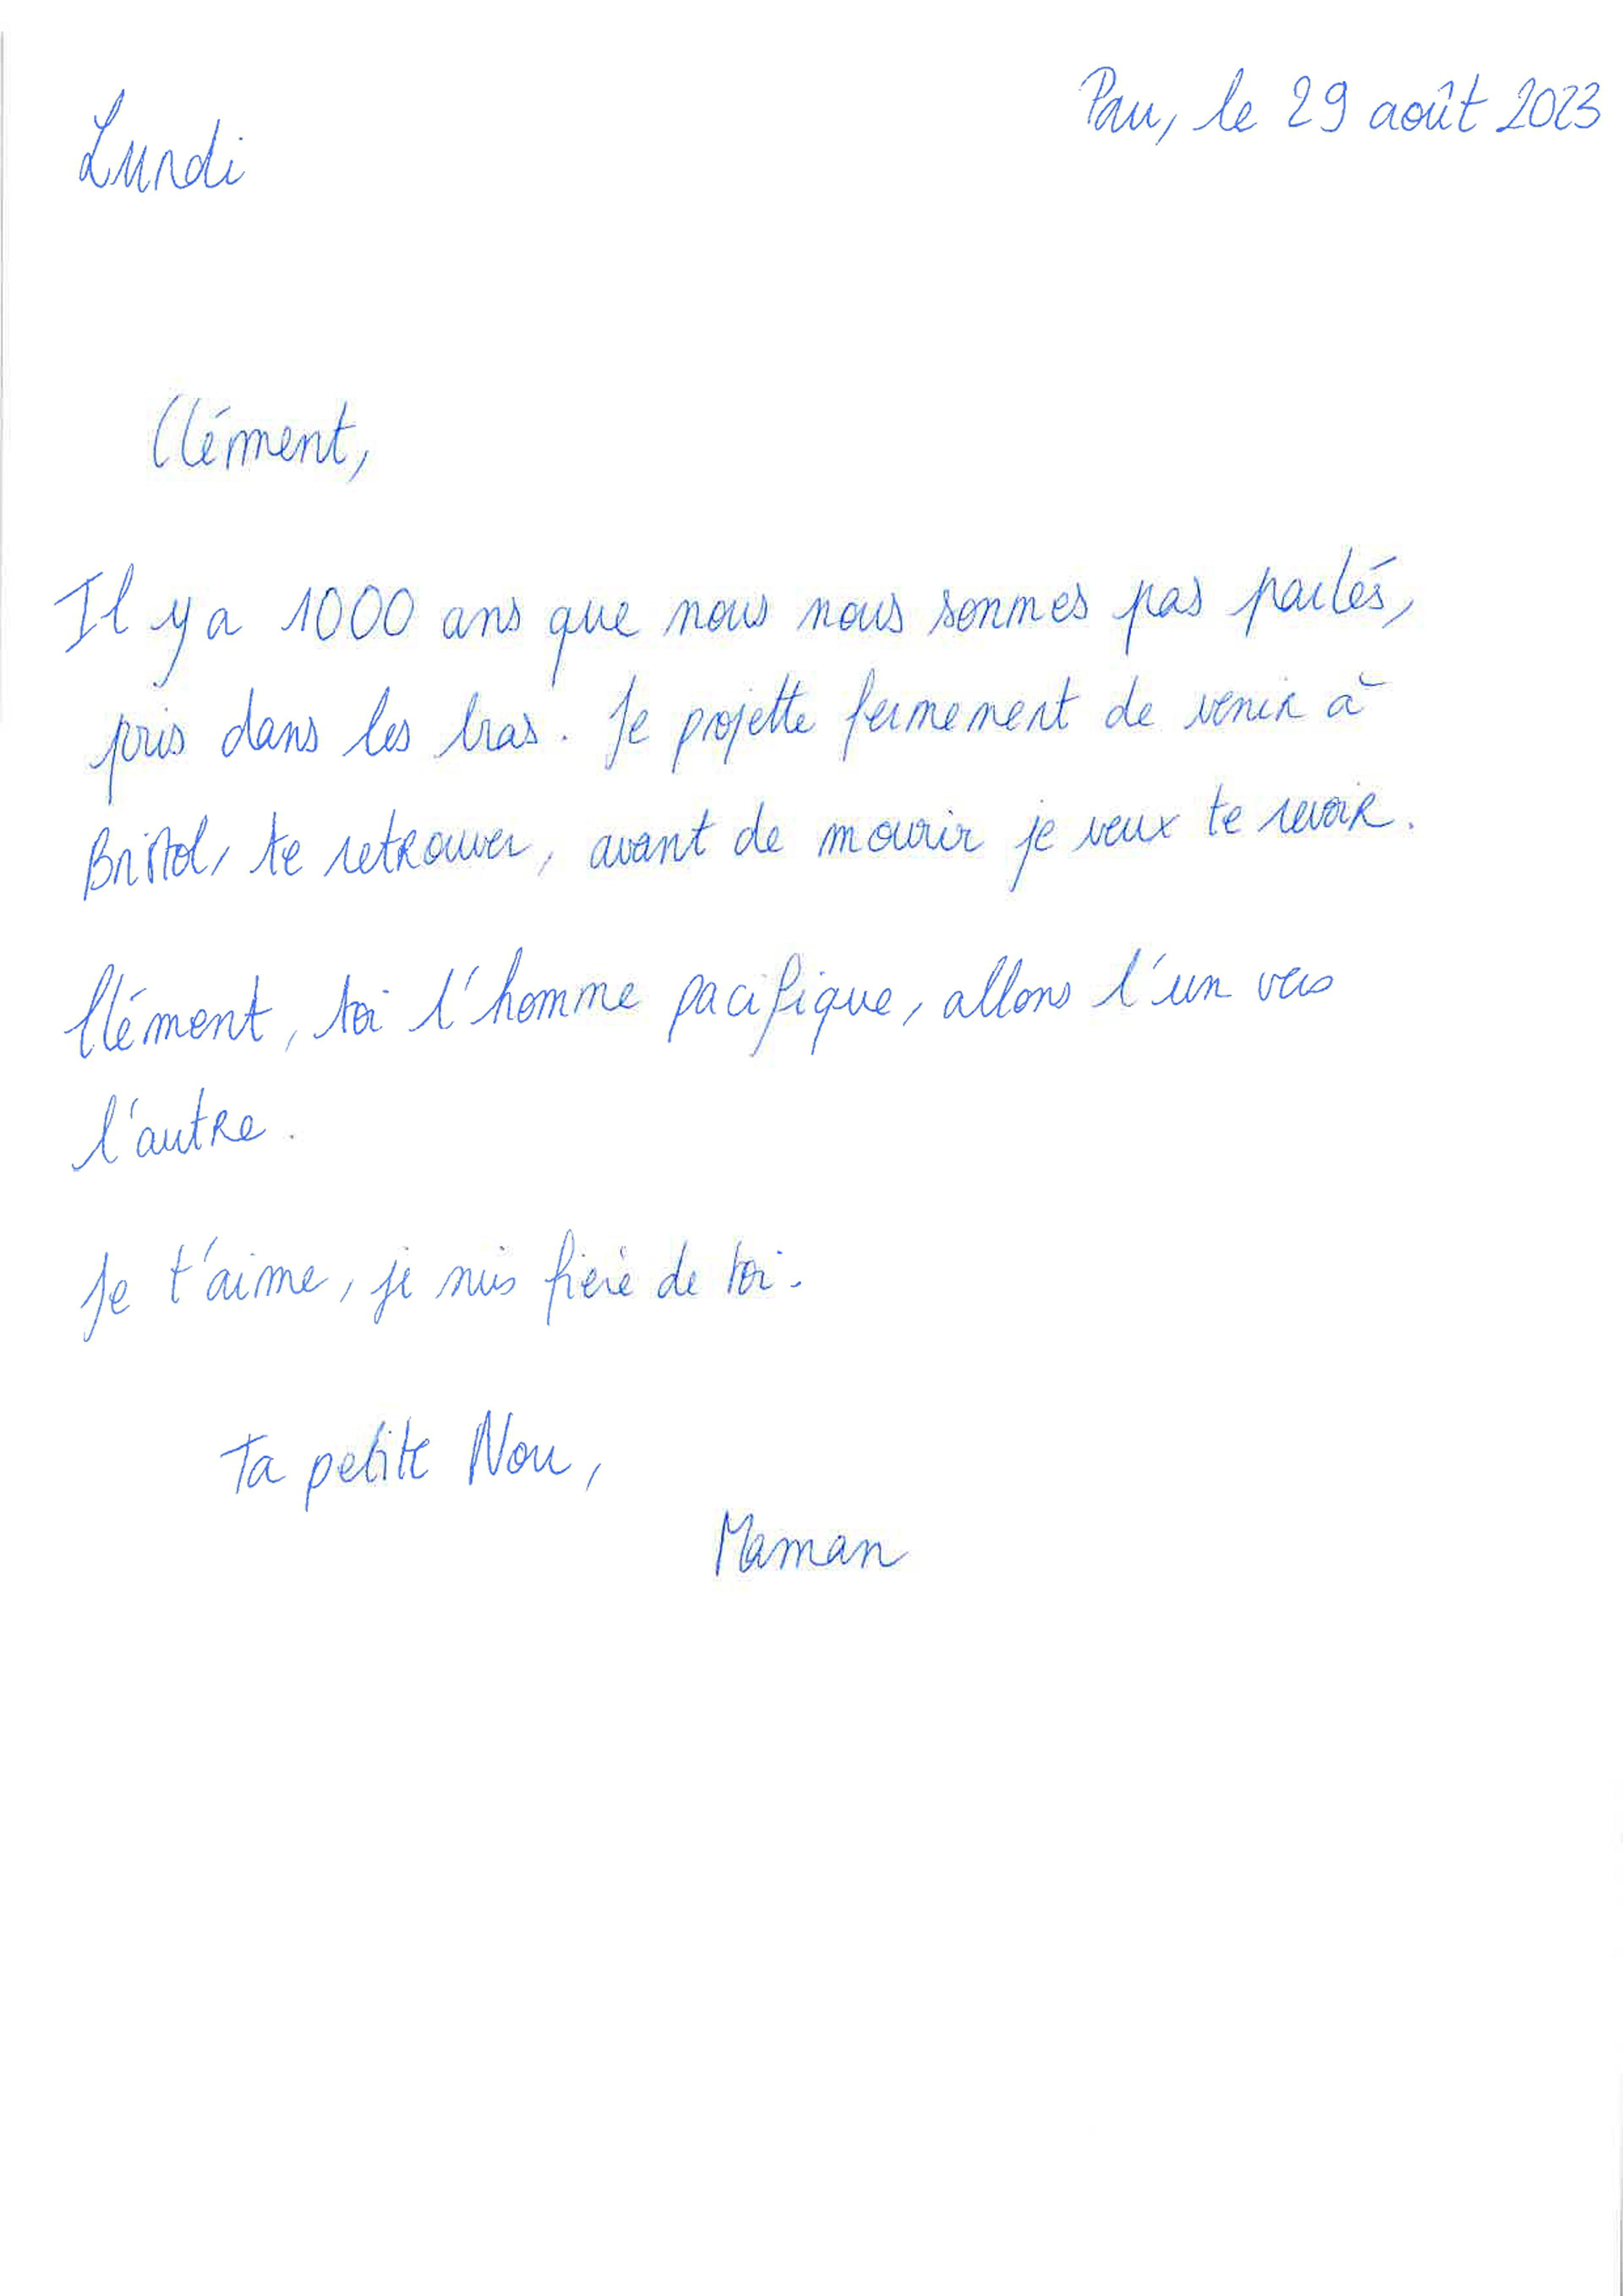 Pau, le 29 août 2023
Lundi
Clément,
Il y a 1000 ans que nous nous sommes pas parlés,
pris dans les bras. Je projette fermement de venir à
Bristol, te retrouver, avant de mourir je veux te revoir.
Clément, toi l'homme pacifique, allons l'un vers
l'autre.
Je t'aime, je suis fière de toi.
Ta petite Nou,
Maman